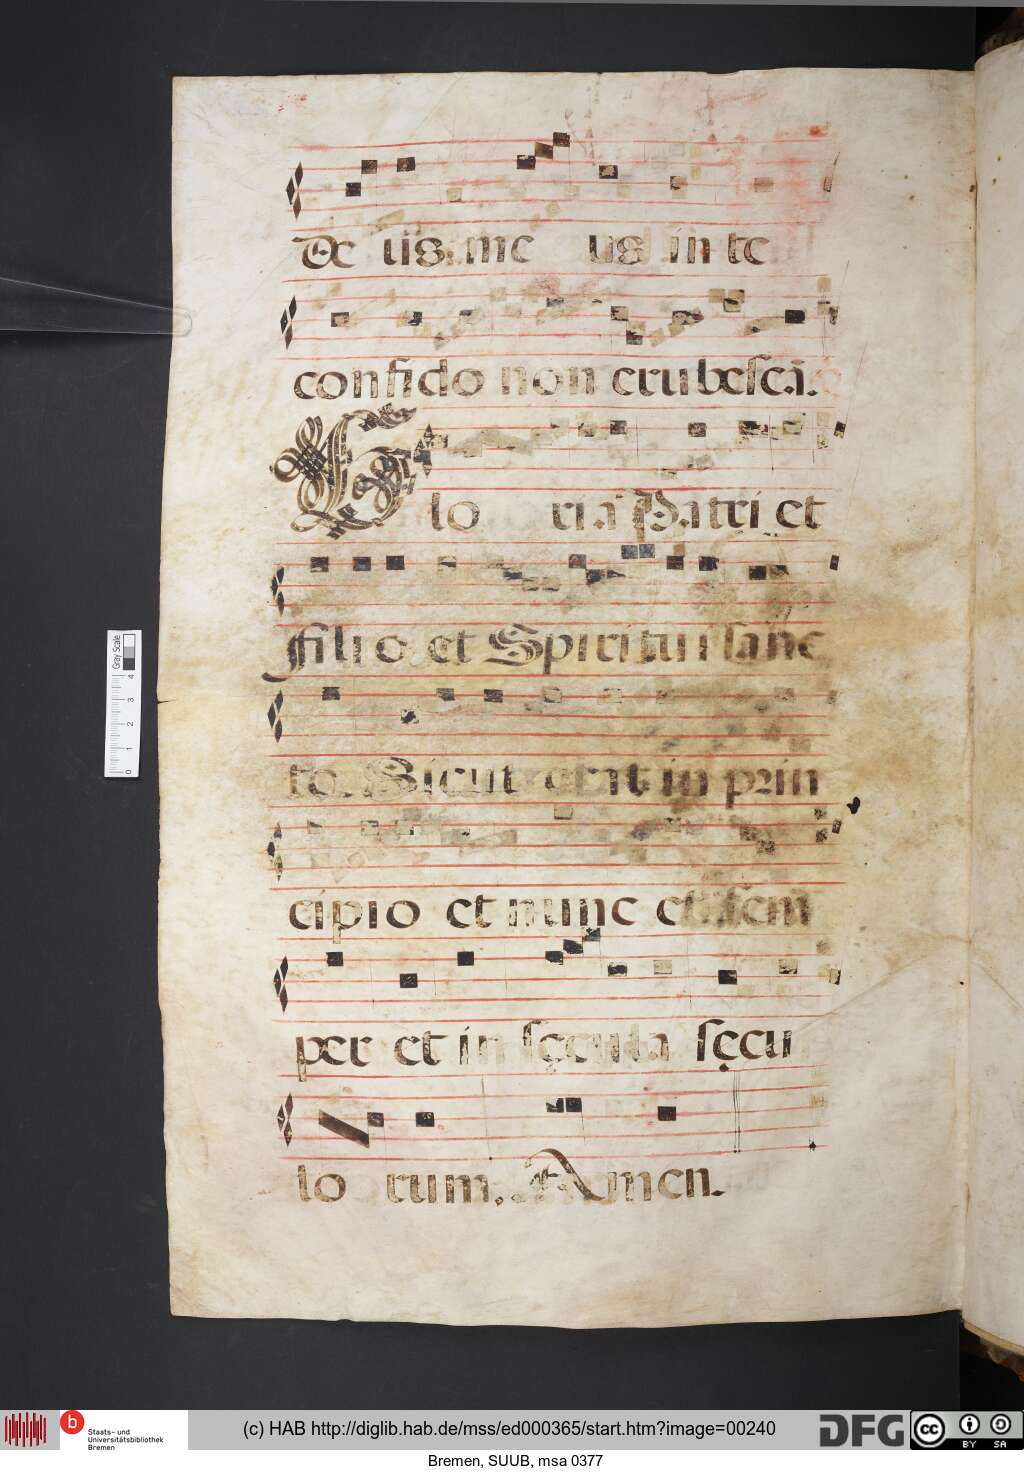 De us me us in te
confido non erubescã.
Glo ria Patri et
Filio et Spiritui sanc
to. Sicut erat in prin
cipio et nunc et sem
per et in sęcula sęcu
lo rum. Amen.
Gray Scale
4
3
2
1
0
b Staats- und
Universitätsbibliothek
Bremen
(c) HAB http://diglib.hab.de/mss/ed000365/start.htm?image=00240
DFG
cc BY SA
Bremen, SUUB, msa 0377